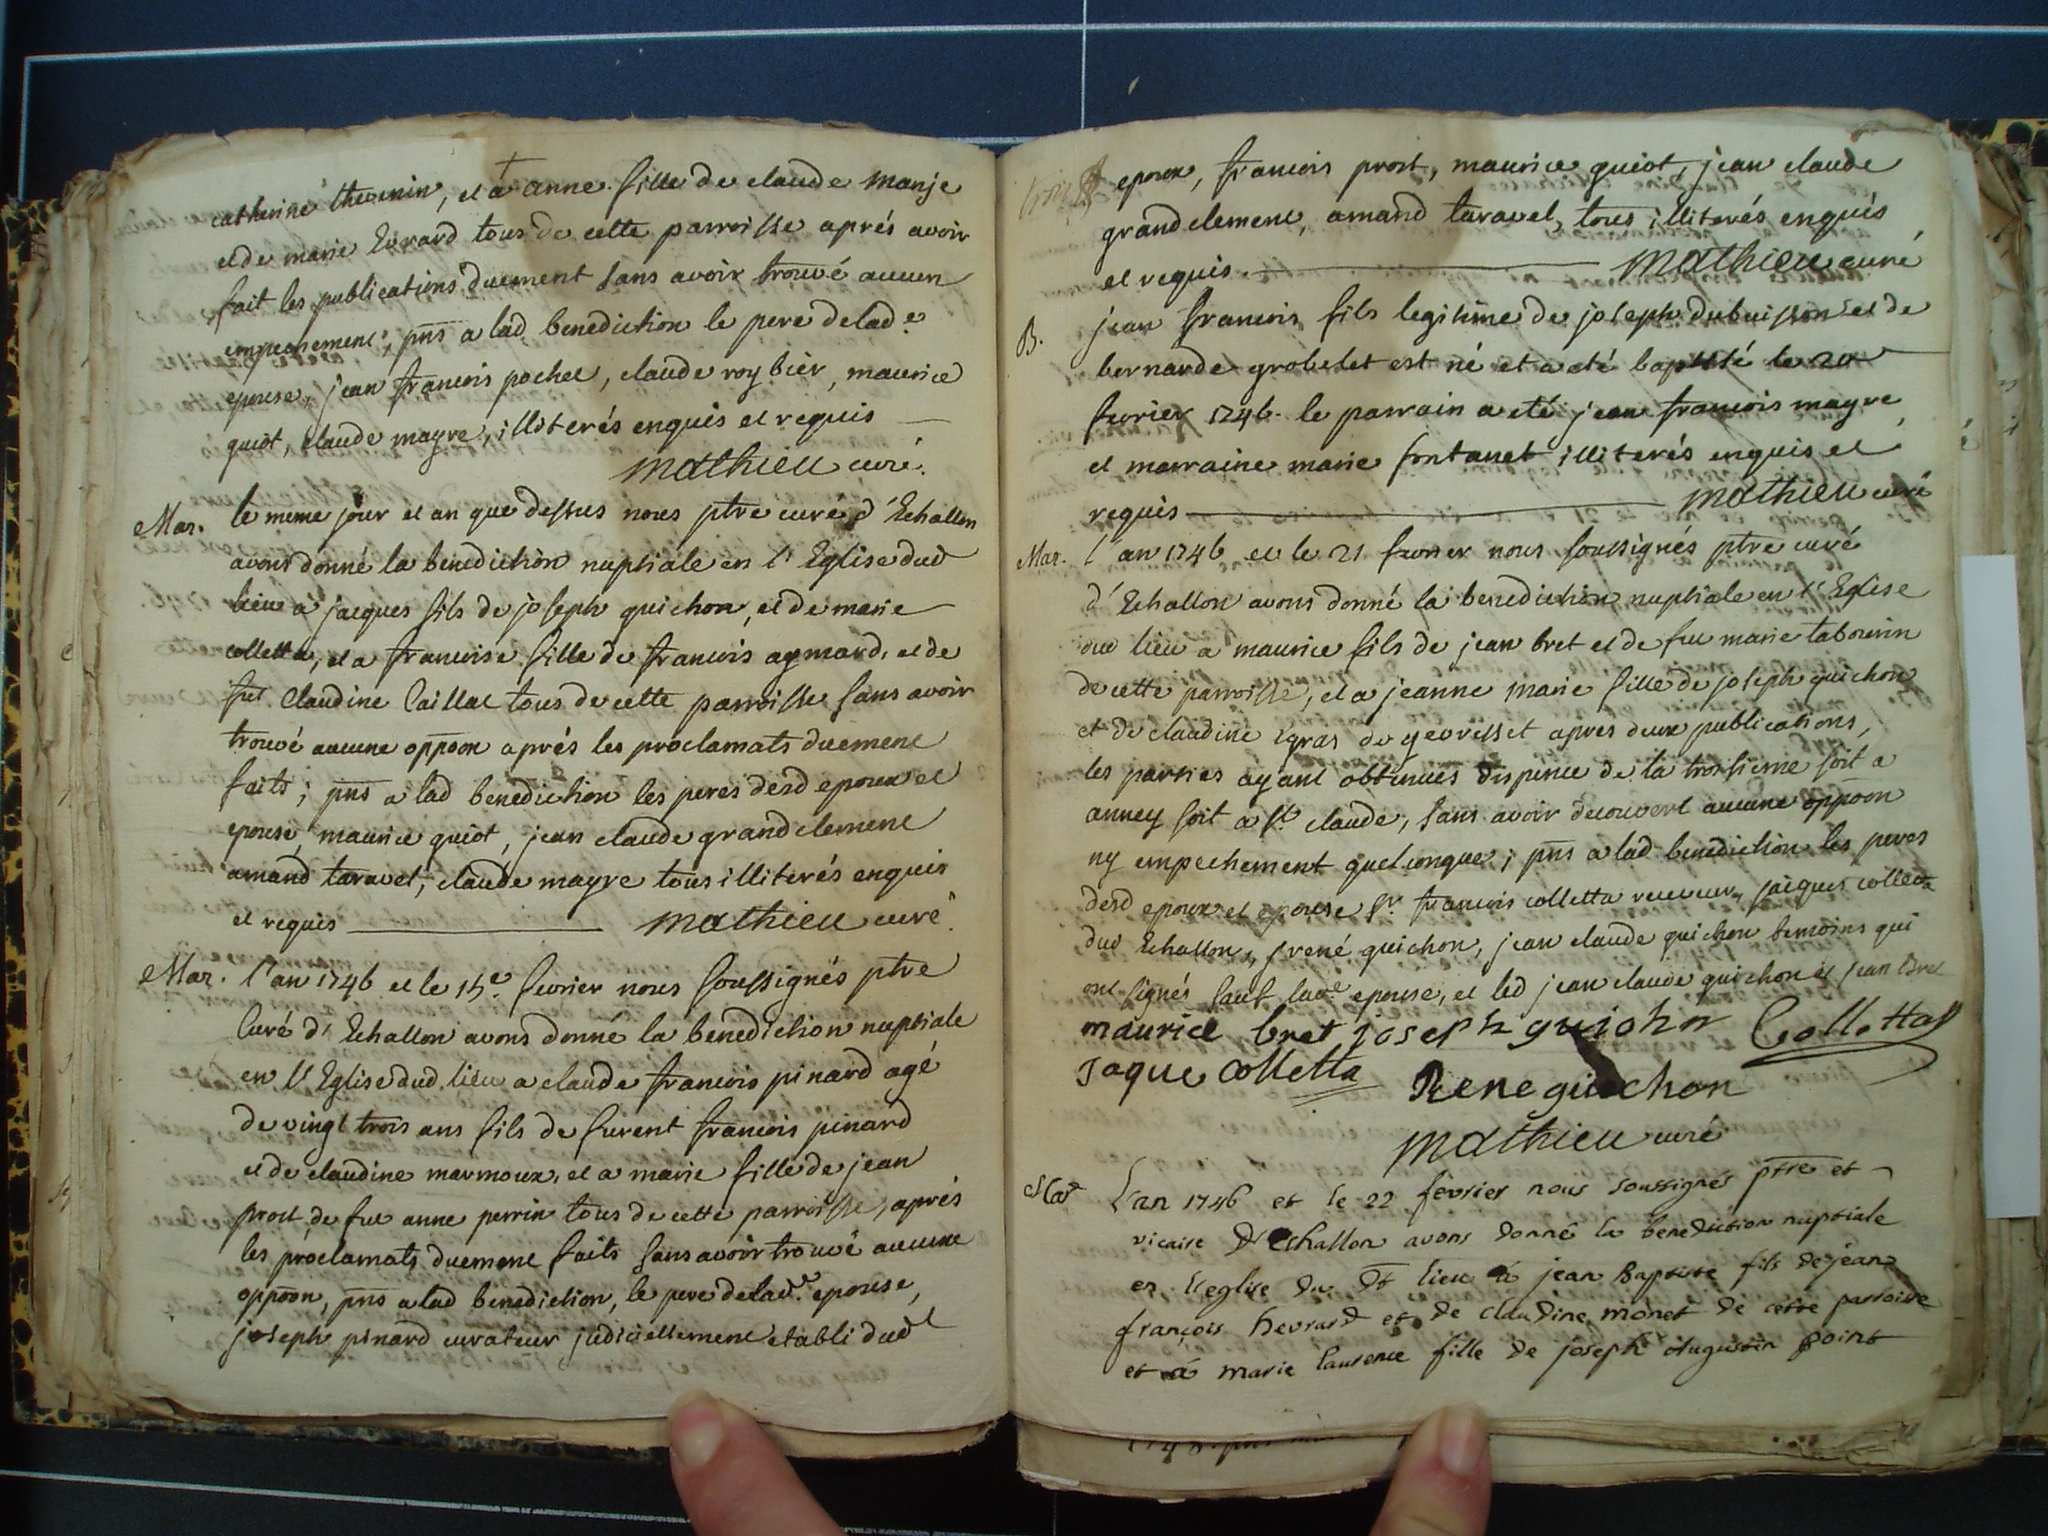 catherine thevenin, et a anne fille de claude manje
et de marie Evrard tous de cette parroisse aprés avoir
fait les publications duement sans avoir trouvé aucun
empechement, pñs a lad benediction le pere de lad.e
epouse, jean francois pochet, claude roybier, maurice
guiot, claude mayre, illiterés enquis et requis
mathieu curé.
Mar. le meme jour et an que dessus nous ptre curé d'Echallon
avons donné la benediction nuptiale en l'Eglise dud
lieu a jacques fils de joseph guichon, et de marie
colletta, et a francoise fille de francois aymard, et de
fut Claudine Caillat tous de cette parroisse sans avoir
trouvé aucune oppõon aprés les proclamats duement
faits ; pñs a lad benediction les peres desd epoux et
epouse, maurice guiot, jean claude grandclement
amand taravel, claude mayre tous illiterés enquis
et requis mathieu curé.
Mar. l'an 1746 et le 15e. fevrier nous soussignés ptre
Curé d'Echallon avons donné la benediction nuptiale
en l'Eglise dud lieu a claude francois pinard agé
de vingt trois ans fils de furent francois pinard
et de claudine marmoux, et a marie fille de jean
prost de fut anne perrin tous de cette parroisse, aprés
les proclamats duement faits sans avoir trouvé aucune
oppõon, pñs a lad benediction, le pere de lad.e epouse,
joseph pinard curateur judiciellement etabli dud
epoux, francois prost, maurice guiot, jean claude
grandclement, amand taravel, tous illiterés enquis
et requis. mathieu curé
B. jean francois fils legitime de joseph dubuisson et de
bernarde grobelet est né et a eté baptisé le 20
fevrier 1746. le parrain a eté jean francois mayre
et marraine marie fontanet illiterés enquis et
requis mathieu curé
Mar. l'an 1746 et le 21 fevrier nous soussignés ptre curé
d'Echallon avons donné la benediction nuptiale en l'Eglise
dud lieu a maurice fils de jean bret et de fut marie tabourin
de cette parroisse, et a jeanne marie fille de joseph guichon
et de claudine gras de gevrisset apres deux publications,
les parties ayant obtenues dispence de la troisieme soit a
anney soit a st. claude, sans avoir decouvert aucune oppõon
ny empechement quelconque ; pñs a lad benediction les peres
desd epoux et epouse sr. francois colletta receveur, jacques colletta
dud Echallon, rené guichon, jean claude guichon temoins qui
ont signés sauf lad.e epouse, et led jean claude guichon et jean bret
maurice bret joseph guichon Collettaz
Jaque colletta Rene guichon
mathieu curé
Mar. L'an 1746 et le 22 février nous soussignés ptre et
vicaire d'Echallon avons donné la benediction nuptiale
en l'eglise du dt lieu à jean Baptiste fils de jean
françois hevrard et de claudine monet de cette parroisse
et à marie laurence fille de joseph Augustin point